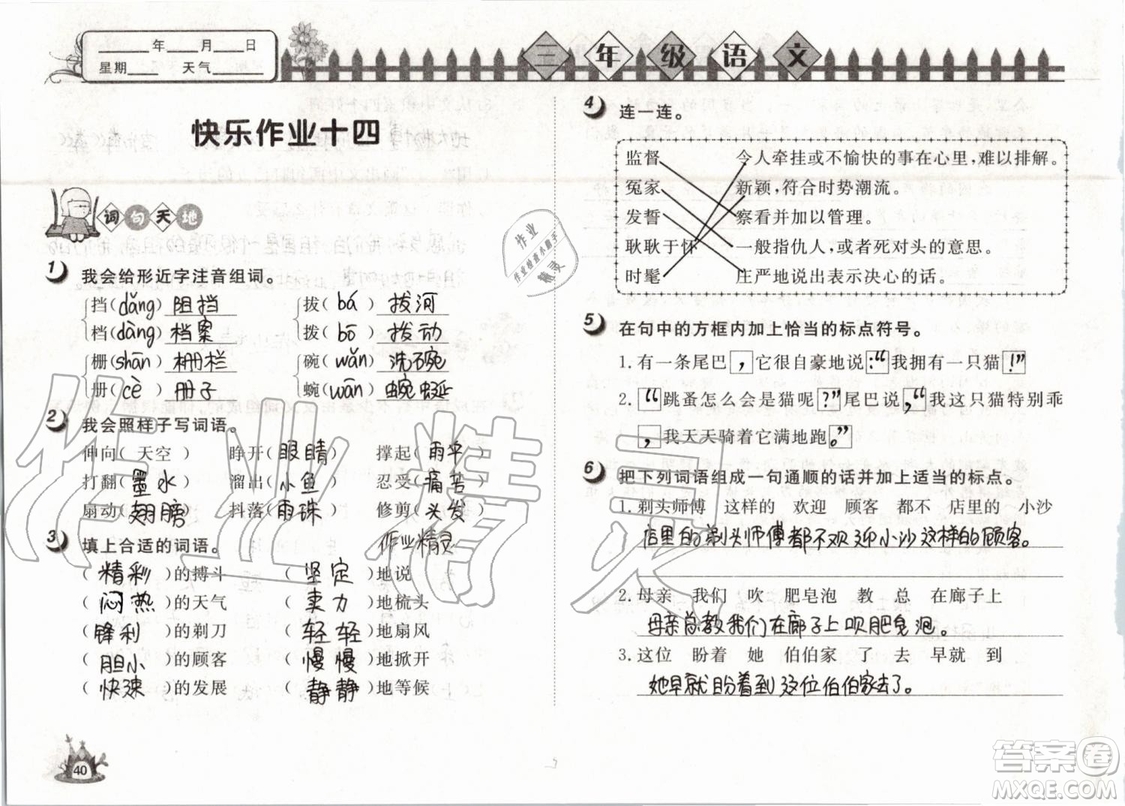 ____年____月____日
星期____ 天气____
三年级语文
快乐作业十四
词句天地
1 我会给形近字注音组词。
挡(dǎng) 阻挡 拔(bá) 拔河
档(dàng) 档案 拨(bō) 拨动
栅(shān) 栅栏 碗(wǎn) 洗碗
册(cè) 册子 蜿(wān) 蜿蜒
2 我会照样子写词语。
伸向(天空) 睁开(眼睛) 撑起(雨伞)
打翻(墨水) 溜出(小鱼) 忍受(痛苦)
扇动(翅膀) 抖落(雨珠) 修剪(头发)
3 填上合适的词语。
作业精灵
(精彩)的搏斗 (坚定)地说
(闷热)的天气 (卖力)地梳头
(锋利)的剃刀 (轻轻)地扇风
(胆小)的顾客 (慢慢)地掀开
(快速)的发展 (静静)地等候
40
4 连一连。
监督 令人牵挂或不愉快的事在心里,难以排解。
冤家 新颖,符合时势潮流。
发誓 察看并加以管理。
耿耿于怀 一般指仇人,或者死对头的意思。
时髦 庄严地说出表示决心的话。
5 在句中的方框内加上恰当的标点符号。
1.有一条尾巴,它很自豪地说:“我拥有一只猫!”
2.“跳蚤怎么会是猫呢?”尾巴说,“我这只猫特别乖
,我天天骑着它满地跑。”
6 把下列词语组成一句通顺的话并加上适当的标点。
1.剃头师傅 这样的 欢迎 顾客 都不 店里的 小沙
店里的剃头师傅都不欢迎小沙这样的顾客。
2.母亲 我们 吹 肥皂泡 教 总 在廊子上
母亲总教我们在廊子上吹肥皂泡。
3.这位 盼着 她 伯伯家 了 去 早就 到
她早就盼着到这位伯伯家去了。
作业精灵
答案圈
MXQE.COM